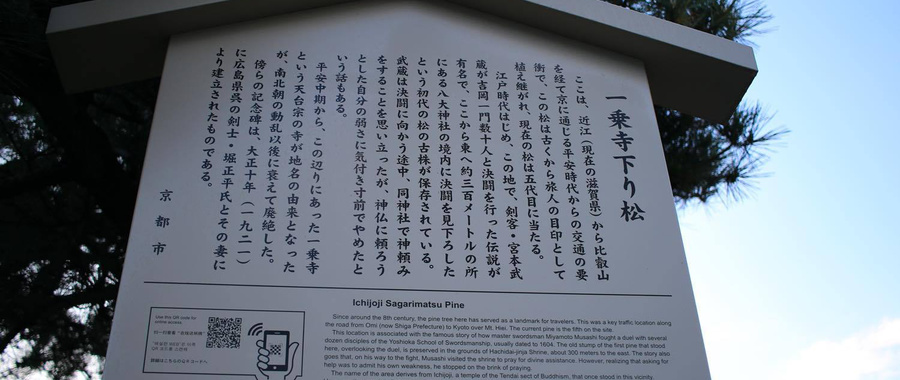 一乗寺下り松
ここは、近江（現在の滋賀県）から比叡山
を経て京に通じる平安時代からの交通の要
衝で、この松は古くから旅人の目印として
植え継がれ、現在の松は五代目に当たる。
江戸時代はじめ、この地で、剣客・宮本武
蔵が吉岡一門数十人と決闘を行った伝説が
有名で、ここから東へ約三百メートルの所
にある八大神社の境内に決闘を見下ろした
という初代の松の古株が保存されている。
武蔵は決闘に向かう途中、同神社で神頼み
をすることを思い立ったが、神仏に頼ろう
とした自分の弱さに気付き寸前でやめたと
いう話もある。
平安中期から、この辺りにあった一乗寺
という天台宗の寺が地名の由来となった
が、南北朝の動乱以後に衰えて廃絶した。
傍らの記念碑は、大正十年（一九二一）
に広島県呉の剣士・堀正平氏とその妻に
より建立されたものである。
京都市
Ichijoji Sagarimatsu Pine
Since around the 8th century, the pine tree here has served as a landmark for travelers. This was a key traffic location along
the road from Omi (now Shiga Prefecture) to Kyoto over Mt. Hiei. The current pine is the fifth on the site.
This location is associated with the famous story of how master swordsman Miyamoto Musashi fought a duel with several
dozen disciples of the Yoshioka School of Swordsmanship, usually dated to 1604. The old stump of the first pine that stood
here, overlooking the duel, is preserved in the grounds of Hachidai-jinja Shrine, about 300 meters to the east. The story also
goes that, on his way to the fight, Musashi visited the shrine to pray for divine assistance. However, realizing that asking for
help was to admit his own weakness, he stopped on the brink of praying.
The name of the area derives from Ichijoji, a temple of the Tendai sect of Buddhism, that once stood in this vicinity.
Use this QR code for
online access.